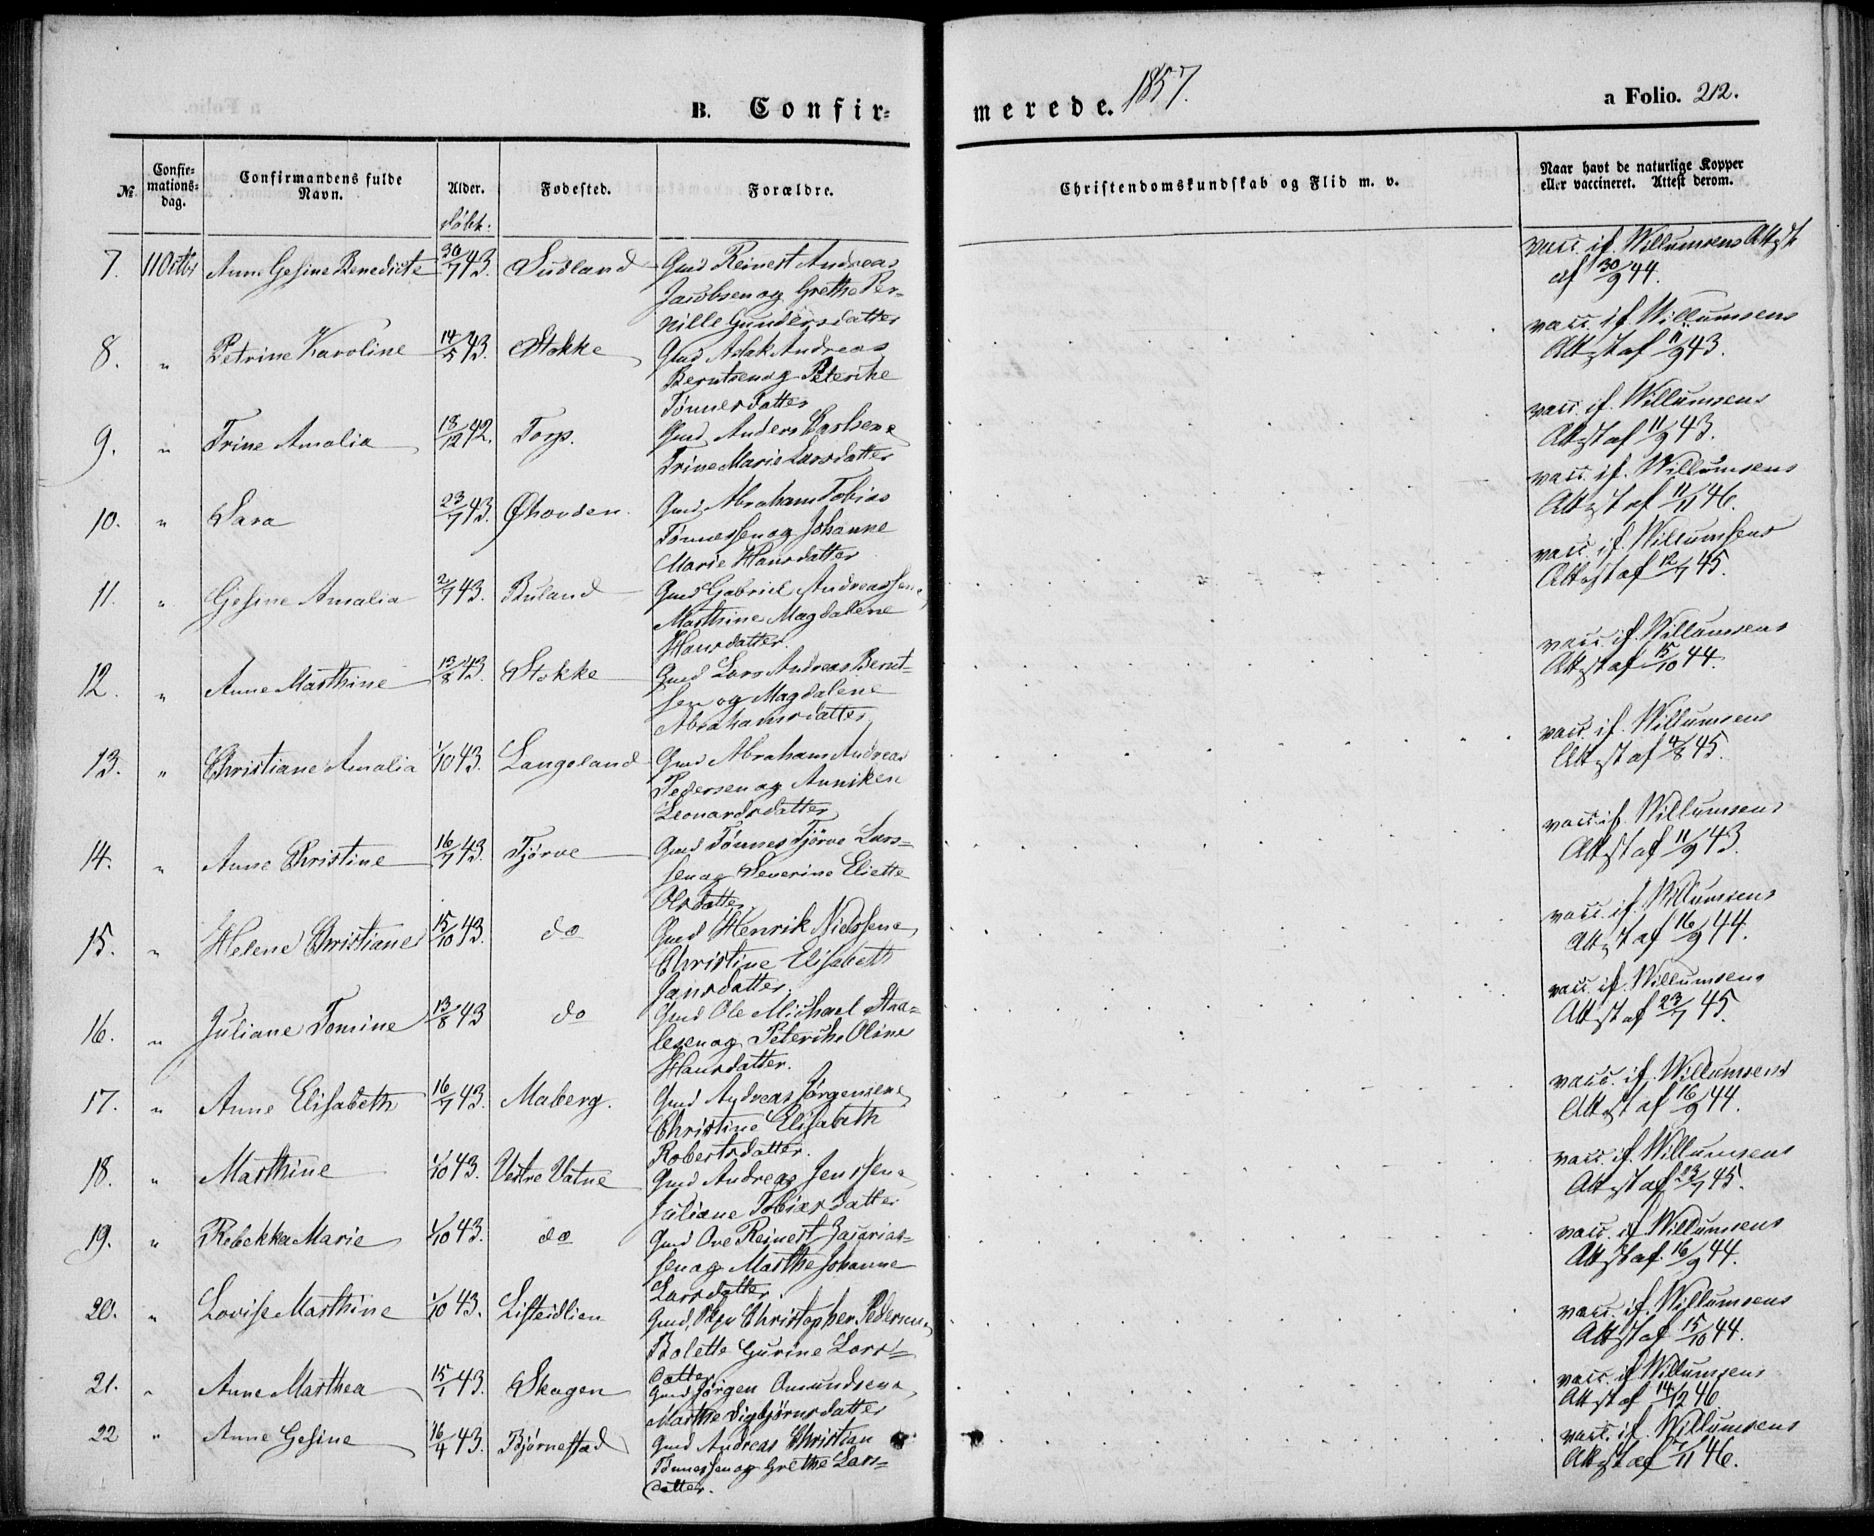 B. Confir-
merede. 1857.
a Folio. 212.
№
Confir-
mations-
dag.
Confirmandens fulde
Navn.
Alder.
døbt.
Fødested.
Forældre.
Christendomskundskab og Flid m. v.
Naar havt de naturlige Kopper
eller vaccineret. Attest derom.
7. 11 Octbr Anne Gesine Benedicte 30/7 43. Sudland Gmd Reinert Andreas
Jacobsen og Grethe Per-
nille Gundersdatter
vacc. if. Willumsens Attest
af 30/9 44.
8. " Petrine Karoline 14/5 43. Stokke Gmd Aslak Andreas
Berntsen og Peterike
Tønnesdatter
vacc. if. Willumsens
Attest af 11/9 43.
9. " Trine Amalia 18/12 42. Torp. Gmd Anders Carlsen,
Trine Marie Larsdatter
vacc. if. Willumsens
Attest af 11/9 43.
10. " Sara 23/7 43. Øhovden. Gmd Abraham Tobias
Tønnessen og Johanne
Marie Hansdatter
vacc. if. Willumsens
Attest af 11/11 46.
11. " Gesine Amalia 2/7 43. Buland Gmd Gabriel Andreassen,
Marthine Magdalene
Hansdatter.
vacc. if. Willumsens
Attest af 12/7 45.
12. " Anne Marthine 13/8 43. Stokke Gmd Lars Andreas Bernt-
sen og Magdalene
Abrahamsdatter
vacc. if. Willumsens
Attest af 15/10 44.
13. " Christiane Amalia 1/10 43. Langeland Gmd Abraham Andreas
Pedersen og Anniken
Leonardsdatter
vacc. if. Willumsens
Attest af 4/8 45.
14. " Anne Christine 16/7 43. Tjørve Gmd Tønnes Tjørve Lars-
sen og Severine Eliette
Olsdatter
vacc. if. Willumsens
Attest af 11/9 43.
15. " Helene Christiane 15/10 43. do Gmd Henrik Nielssen,
Christine Elisabeth
Jansdatter.
vacc. if. Willumsens
Attest af 16/9 44.
16. " Juliane Tomine 13/8 43 do Gmd Ole Michael
og Peterike Oline
Hansdatter.
vacc. if. Willumsens
Attest af 23/7 45.
17. " Anne Elisabeth 16/7 43. Maberg. Gmd Andreas Jørgensen,
Christine Elisabeth
Robertsdatter.
vacc. if. Willumsens
Attest af 16/9 44.
18. " Marthine 1/10 43. Vestre Vatne Gmd Andreas Jenssen,
Juliane Tobiasdatter
vacc. if. Willumsens
Attest af 23/7 45.
19. " Rebekka Marie 1/10 43. do Gmd Ove Reinert Zacarias-
sen og Marthe Johanne
Larsdatter.
vacc. if. Willumsens
Attest af 16/9 44.
20. " Lovise Marthine 1/10 43. Listeidlien Gmd. Christopher Pedersen,
Bolette Gurine Lars-
datter
vacc. if. Willumsens
Attest af 15/10 44.
21. " Anne Marthea 15/1 43. Skagen Gmd Jørgen Omundsen,
Marthe Sigbjørnsdatter
vacc. if. Willumsens
Attest af 14/12 46.
22 " Anne Gesine 16/4 43. Bjørnestad Gmd Andreas Christian
Tønnessen og Grethe Lars-
datter.
vacc. if. Willumsens
Attest af 7/11 46.